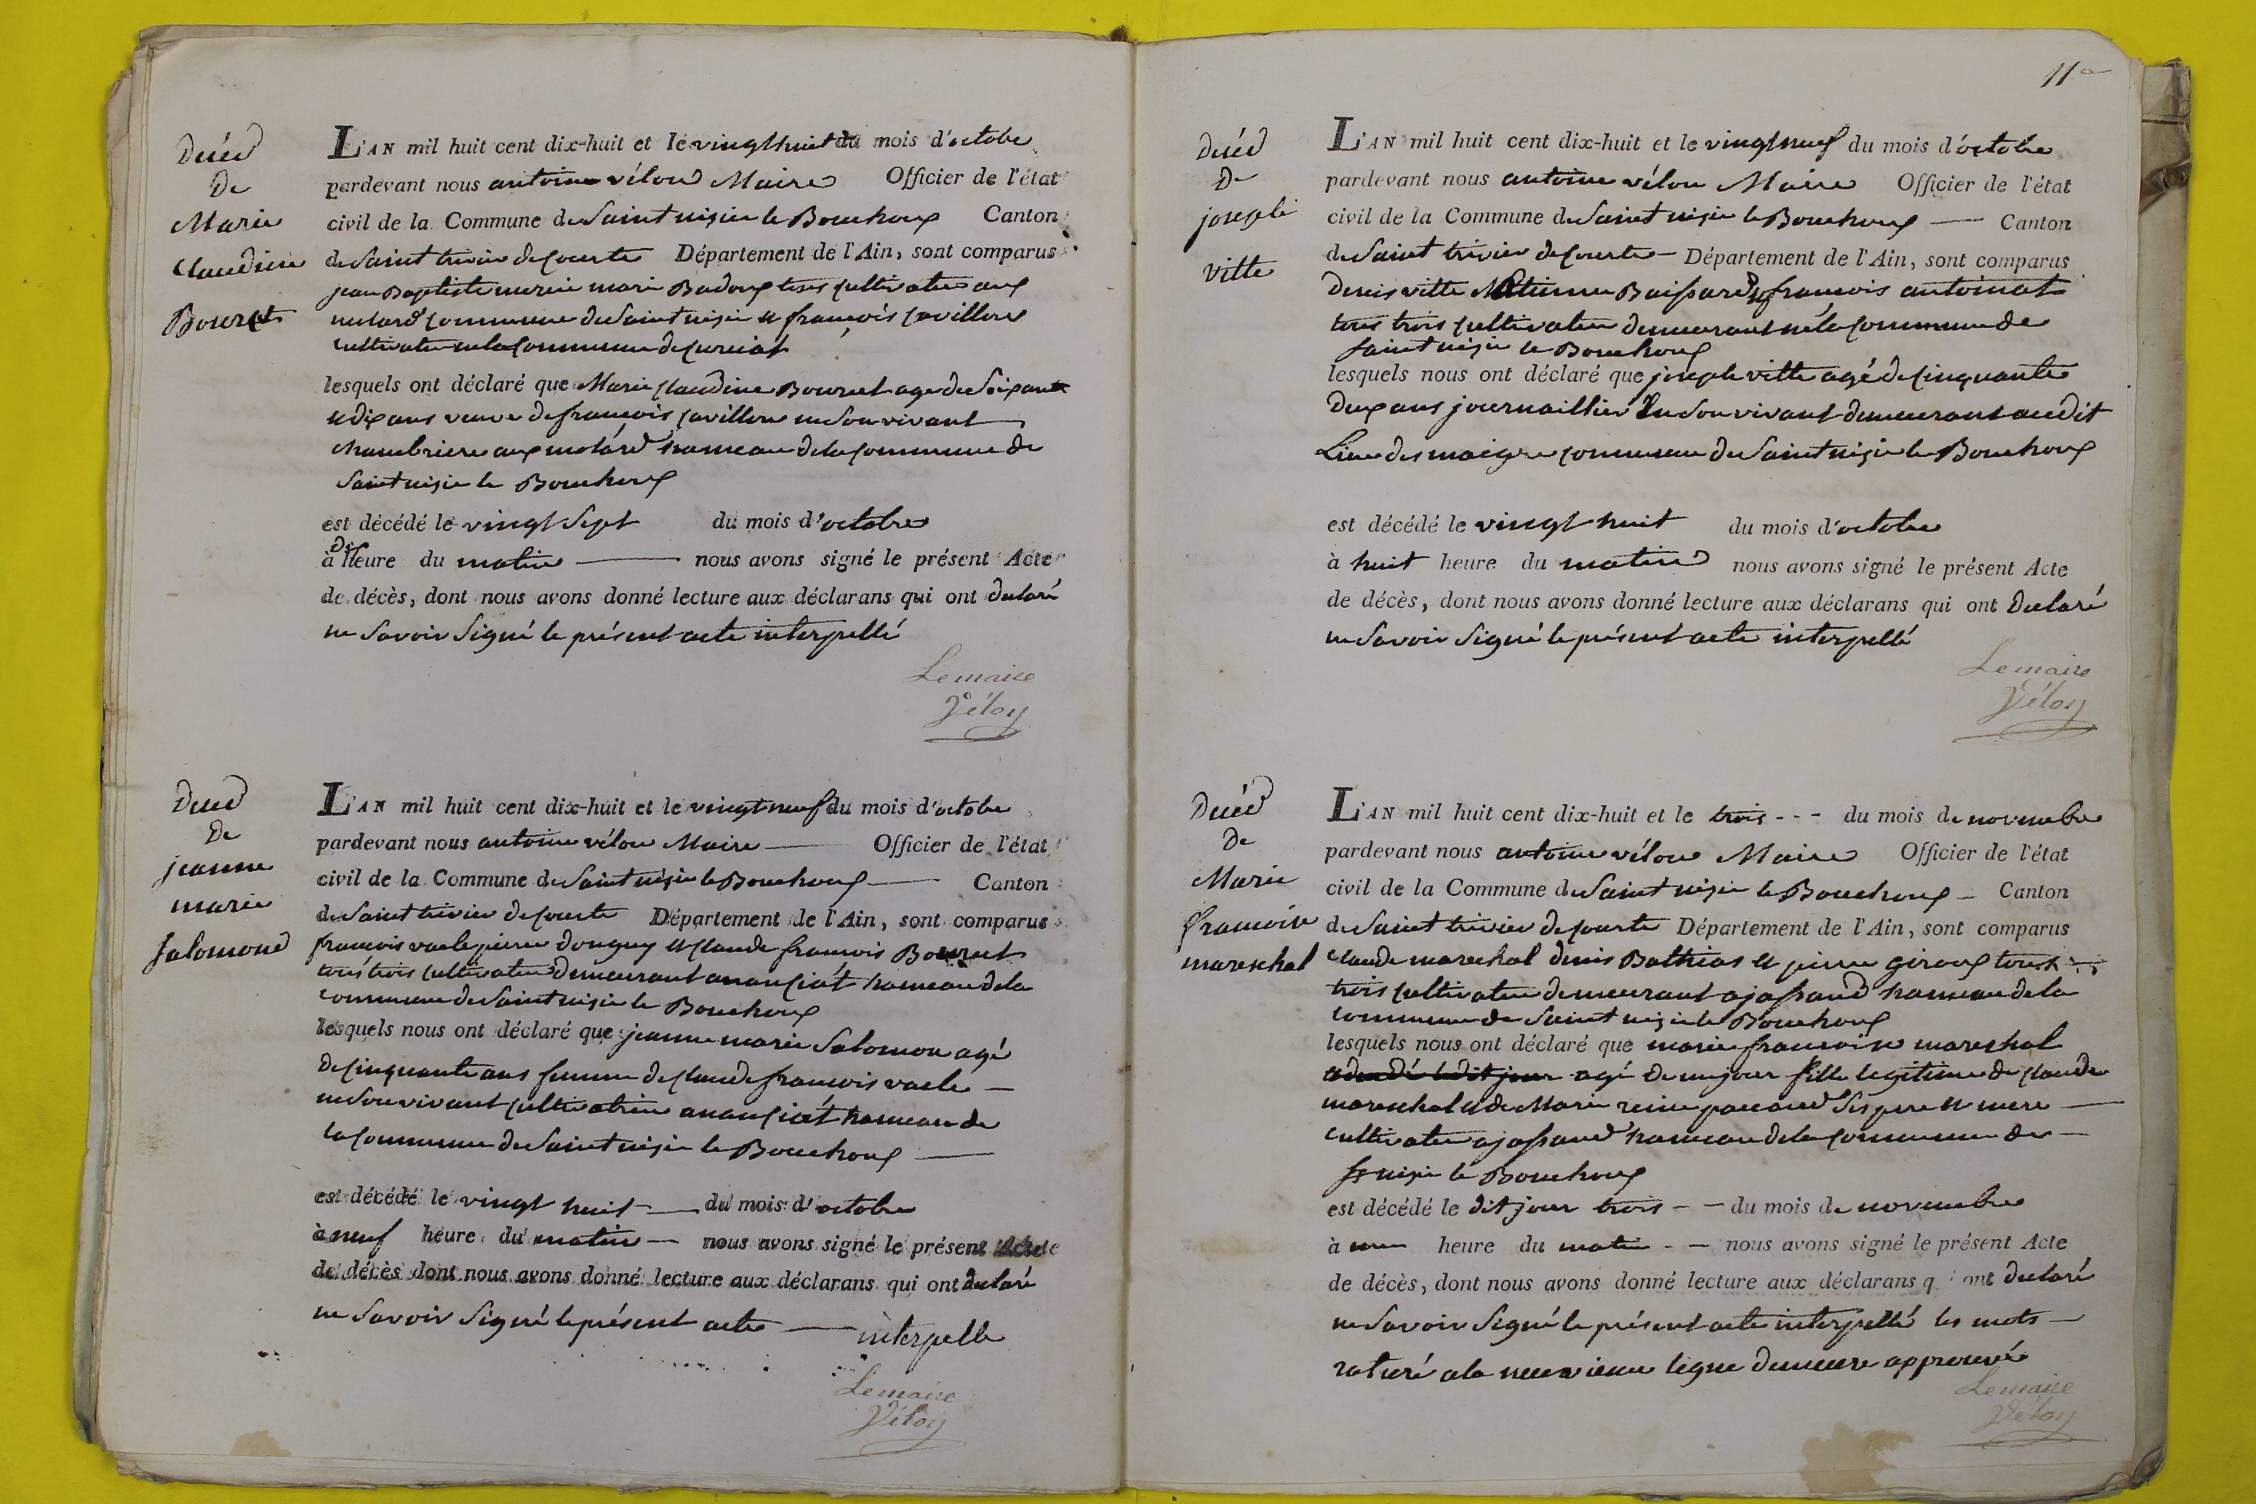 Décéd
De
Marie
Claudine
Bouret
L'AN mil huit cent dix-huit et le vingt huit du mois d'octobre
pardevant nous antoine véloy Maire Officier de l'état
civil de la Commune de Saint nizier le Bouchoux Canton
de Saint trivier de Courte Département de l'Ain, sont comparus
jean Baptiste mercie marie Badoux tous cultivateu aux
mutard commune de Saint nizie et françois cavillon
cultivateur en la commune de curciat
lesquels ont déclaré que Marie Claudine Bouret age de Soixante
et dix ans veuve de françois cavillon en Son vivant
chambriere aux motard hameau de la commune de
Saint nizie le Bouchoux
est décédé le vingt Sept du mois d'octobre
à Dix heure du matin nous avons signé le présent Acte
de décès, dont nous avons donné lecture aux déclarans qui ont declaré
ne Savoir Signé le présent acte interpellé
Lemaire
Véloy
Décéd
De
jeanne
marie
Salomond
L'AN mil huit cent dix-huit et le vingt neuf du mois d'octobre
pardevant nous antoine véloy Maire Officier de l'état
civil de la Commune de Saint nizie le Bouchoux Canton
de Saint trivier de Courte Département de l'Ain, sont comparus
françois vacle pierre donguy et claude françois Bouret
tous trois cultivateu demeurant a nanciat hameau de la
commune de Saint nizie le Bouchoux
lesquels nous ont déclaré que jeanne marie Salomon agé
de cinquante ans femme de claude françois vacle
en Son vivant cultivatrice a nanciat hameau de
la commune de Saint nizie le Bouchoux
est décédé le vingt huit du mois d'octobre
à neuf heure du matin nous avons signé le présent Acte
de décès dont nous avons donné lecture aux déclarans qui ont declaré
ne Savoir Signé le présent acte interpellé
Lemaire
Véloy
11
Décéd
De
joseph
vitte
L'AN mil huit cent dix-huit et le vingt neuf du mois d'octobre
pardevant nous antoine véloy Maire Officier de l'état
civil de la Commune de Saint nizie le Bouchoux Canton
de Saint trivier de Courte Département de l'Ain, sont comparus
Denis vitte Etienne Baissard françois antoinat
tous trois cultivateu demeurant en la commune de
Saint nizie le Bouchoux
lesquels nous ont déclaré que joseph vitte agé de cinquante
Deux ans journaillier En Son vivant demeurant audit
Lieu des maigre commune de Saint nizie le Bouchoux
est décédé le vingt huit du mois d'octobre
à huit heure du matin nous avons signé le présent Acte
de décès, dont nous avons donné lecture aux déclarans qui ont declaré
ne Savoir Signé le présent acte interpellé
Lemaire
Véloy
Décéd
De
Marie
françoise
mareschal
L'AN mil huit cent dix-huit et le trois du mois de novembre
pardevant nous antoine véloy Maire Officier de l'état
civil de la Commune de Saint nizie le Bouchoux Canton
de Saint trivier de Courte Département de l'Ain, sont comparus
claude marechal denis Bathias et pierre giroux tous
trois cultivateu demeurant a jassand hameau de la
commune de Saint nizie le Bouchoux
lesquels nous ont déclaré que marie françoise mareschal
agé de un jour fille legitime de claude
mareschal et de Marie reine pacaud Ses pere et mere
cultivateu a jassand hameau de la commune de
St nizie le Bouchoux
est décédé le dit jour trois du mois de novembre
à une heure du matin nous avons signé le présent Acte
de décès, dont nous avons donné lecture aux déclarans q ont declaré
ne Savoir Signé le présent acte interpellé les mots
raturé a la neuvieme ligne demeure approuvé
Lemaire
Véloy